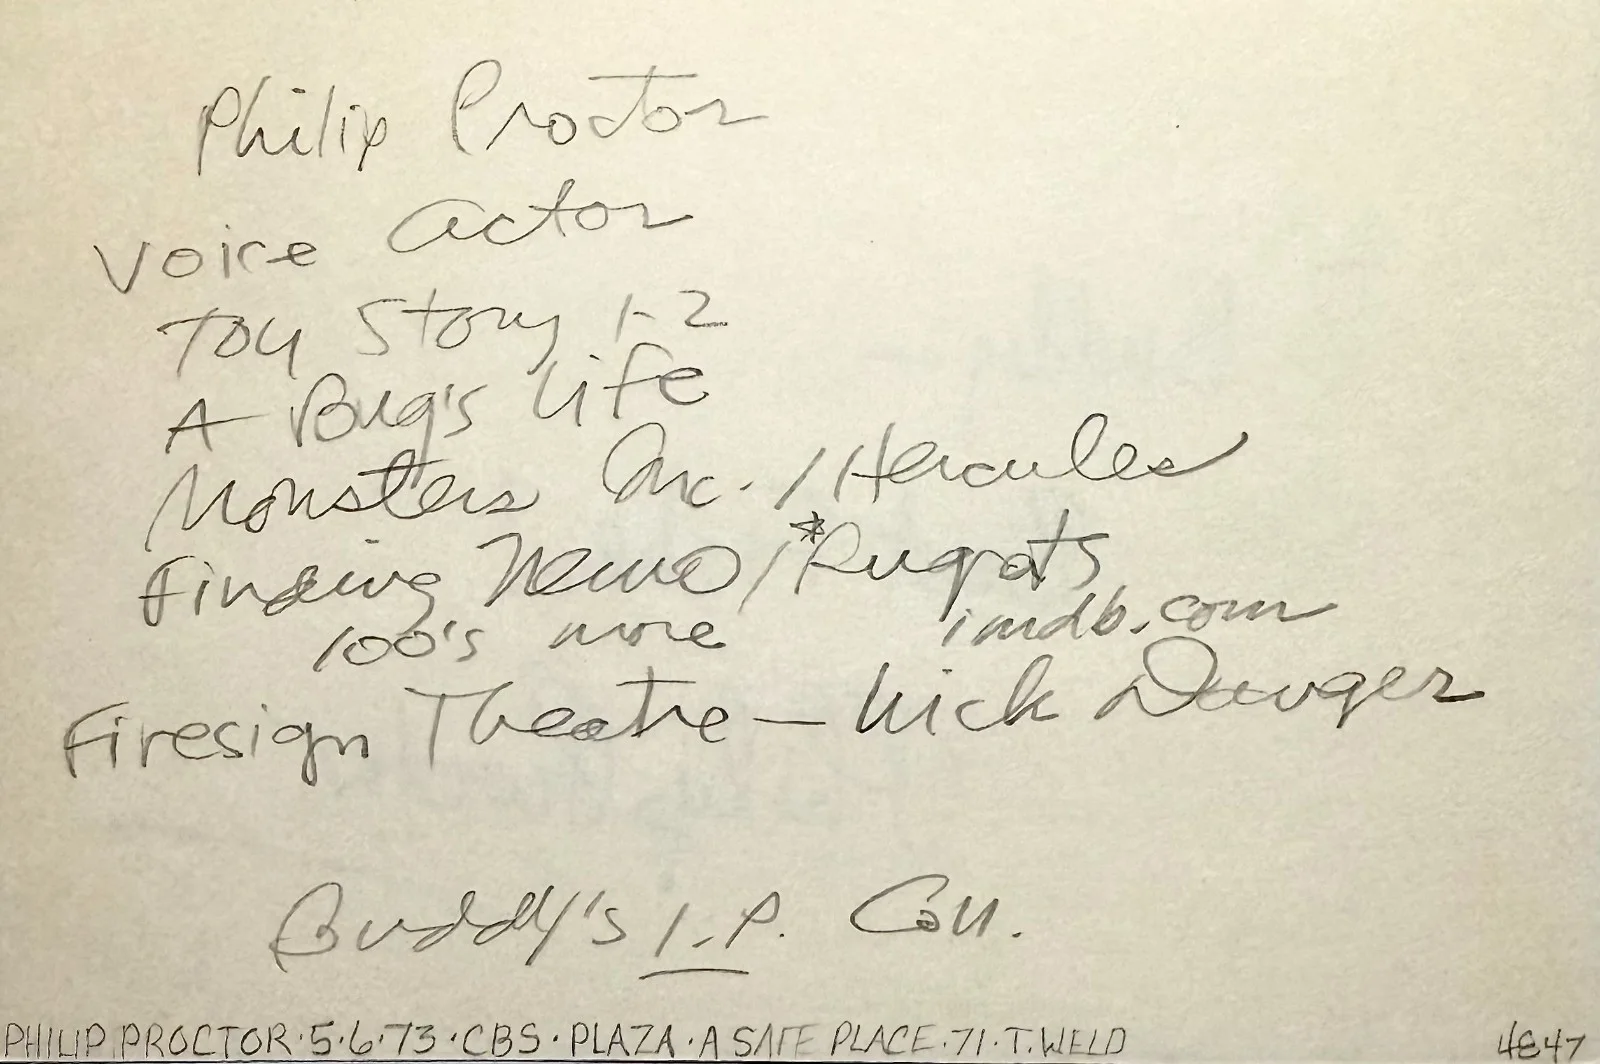 Philip Proctor
Voice actor
Toy Story 1-2
A Bug's Life
Monsters Inc. / Hercules
Finding Nemo / *Rugrats
100's more imdb.com
Firesign Theatre — Nick Danger
Buddy's I.P. Coll.
PHILIP PROCTOR · 5·6·73 · CBS · PLAZA · A SAFE PLACE · 71 · T. WELD
4847